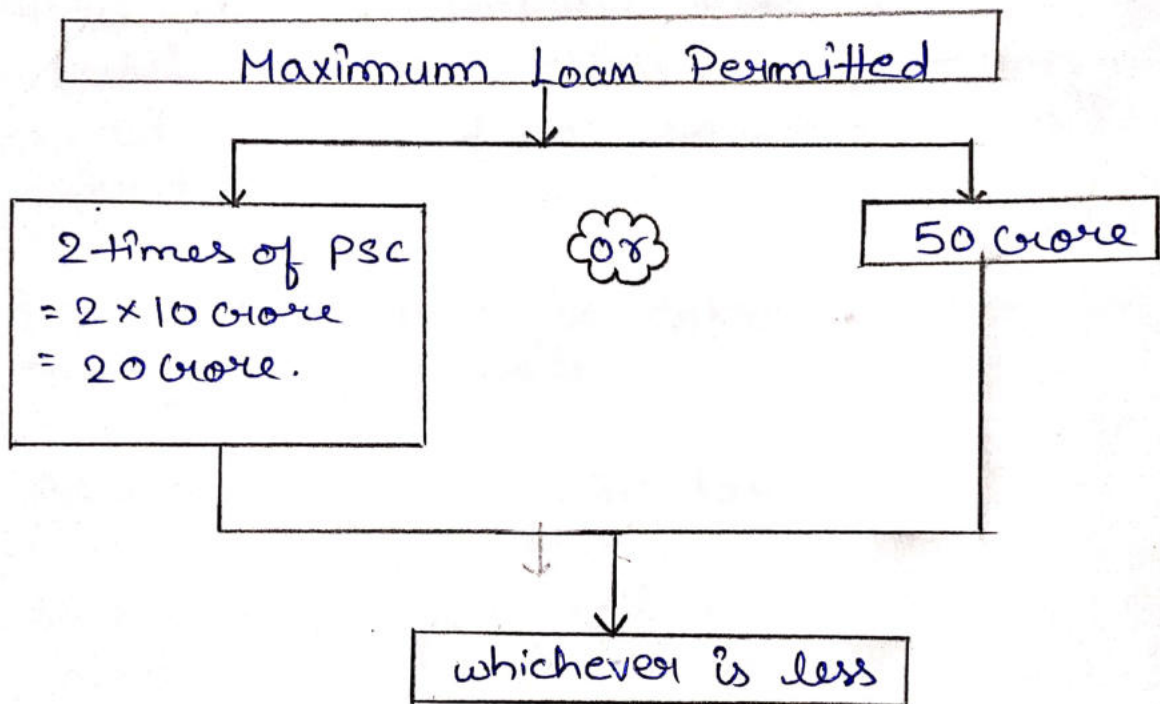 Maximum Loan Permitted
2 times of PSC
= 2 × 10 crore
= 20 crore.
or
50 crore
whichever is less